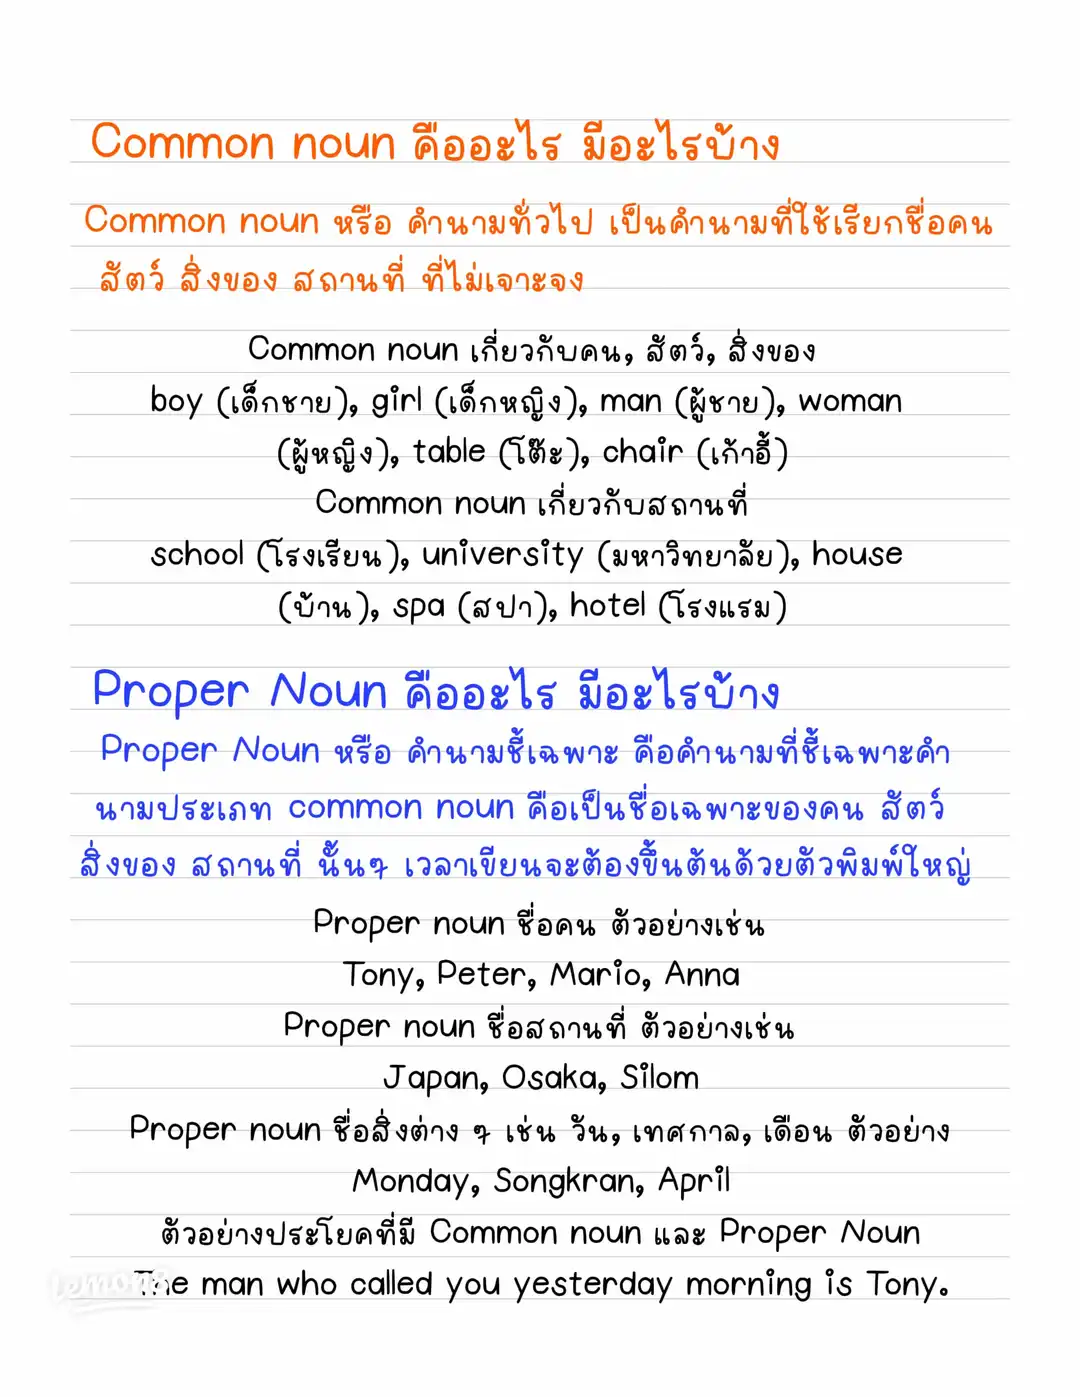 Common noun คืออะไร มีอะไรบ้าง
Common noun หรือ คำนามทั่วไป เป็นคำนามที่ใช้เรียกชื่อคน
สัตว์ สิ่งของ สถานที่ ที่ไม่เจาะจง
Common noun เกี่ยวกับคน, สัตว์, สิ่งของ
boy (เด็กชาย), girl (เด็กหญิง), man (ผู้ชาย), woman
(ผู้หญิง), table (โต๊ะ), chair (เก้าอี้)
Common noun เกี่ยวกับสถานที่
school (โรงเรียน), university (มหาวิทยาลัย), house
(บ้าน), spa (สปา), hotel (โรงแรม)
Proper Noun คืออะไร มีอะไรบ้าง
Proper Noun หรือ คำนามชี้เฉพาะ คือคำนามที่ชี้เฉพาะคำ
นามประเภท common noun คือเป็นชื่อเฉพาะของคน สัตว์
สิ่งของ สถานที่ นั้นๆ เวลาเขียนจะต้องขึ้นต้นด้วยตัวพิมพ์ใหญ่
Proper noun ชื่อคน ตัวอย่างเช่น
Tony, Peter, Mario, Anna
Proper noun ชื่อสถานที่ ตัวอย่างเช่น
Japan, Osaka, Silom
Proper noun ชื่อสิ่งต่าง ๆ เช่น วัน, เทศกาล, เดือน ตัวอย่าง
Monday, Songkran, April
ตัวอย่างประโยคที่มี Common noun และ Proper Noun
The man who called you yesterday morning is Tony.
lemon8